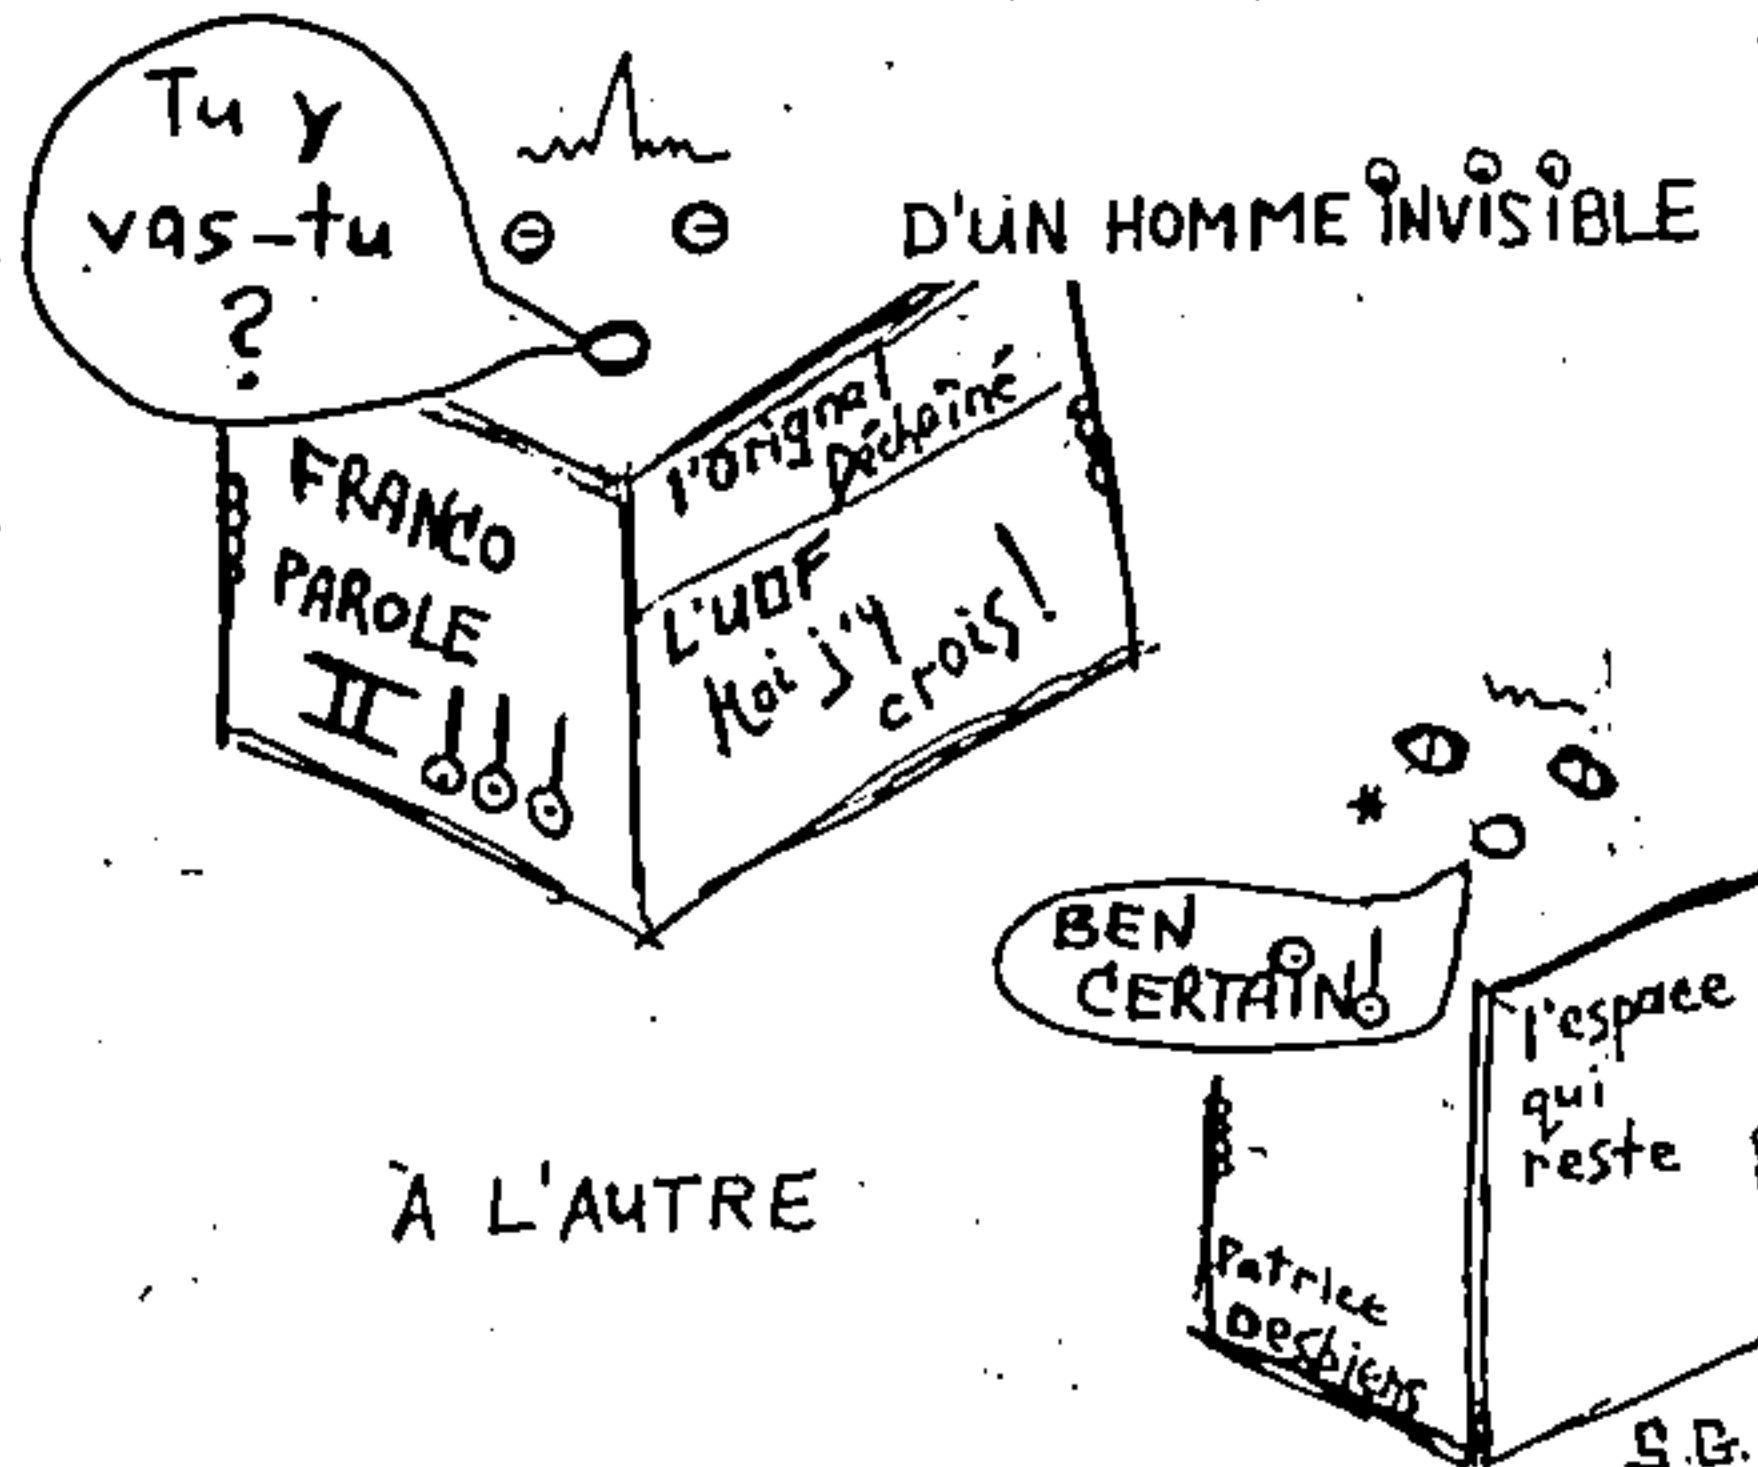 Tu y
vas-tu
?
D'UN HOMME INVISIBLE
FRANCO
PAROLE
II !!!
l'orignal
Déchaîné
L'UOF
Moi j'y
crois!
BEN
CERTAIN!
À L'AUTRE
l'espace
qui
reste
Patrice
Desbiens
S.G.